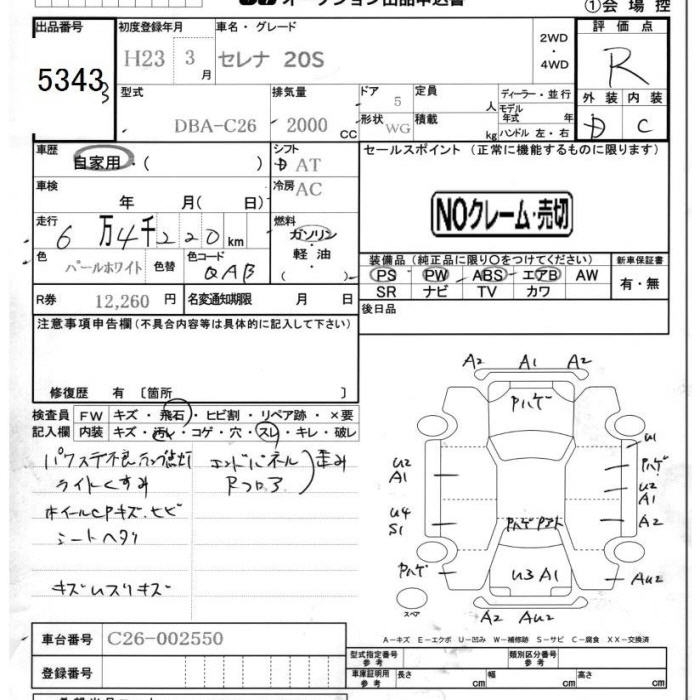 オークション出品申込書
①会場控
出品番号
初度登録年月
車名・グレード
評価点
5343
3
H23 3月
セレナ 20S
2WD
・
4WD
R
型式
排気量
ドア
定員
ディーラー・並行
外装 内装
DBA-C26
2000 CC
5
人
モデル年式 年
D C
形状
WG
積載
kg
ハンドル 左・右
車歴
自家用・( )
シフト
AT
セールスポイント (正常に機能するものに限ります)
車検
年 月( 日)
冷房
AC
NOクレーム・売切
走行
6万4千220km
燃料
ガソリン
・
軽油
( )
色
パールホワイト
色替
色コード
QAB
装備品 (純正品に限り○をつけてください)
新車保証書
PS PW ABS エアB AW
SR ナビ TV カワ
有・無
R券
12,260 円
名変通知期限
月 日
後日品
注意事項申告欄 (不具合内容等は具体的に記入して下さい)
修復歴 有 〔箇所 〕
検査員
記入欄
FW キズ・飛石・ヒビ割・リペア跡・×要
内装 キズ・汚レ・コゲ・穴・スレ・キレ・破レ
パワステ不良ランプ点灯
エンドパネル
歪み
ライトくすみ
Rフロア
ホイールCPキズ、ヒビ
シートヘタリ
キズムスリキズ
A2 A1 A2
Pハゲ
U1
U2
A1
Pハゲ
U2
A1
U4
S1
A2
Pハゲ
U3 A1
AU2
スペア
A2 AU2
A-キズ E-エクボ U-凹み W-補修跡 S-サビ C-腐食 XX-交換済
車台番号
C26-002550
型式指定番号
参考
類別区分番号
参考
登録番号
車庫証明用
参考
長さ cm
幅 cm
高さ cm